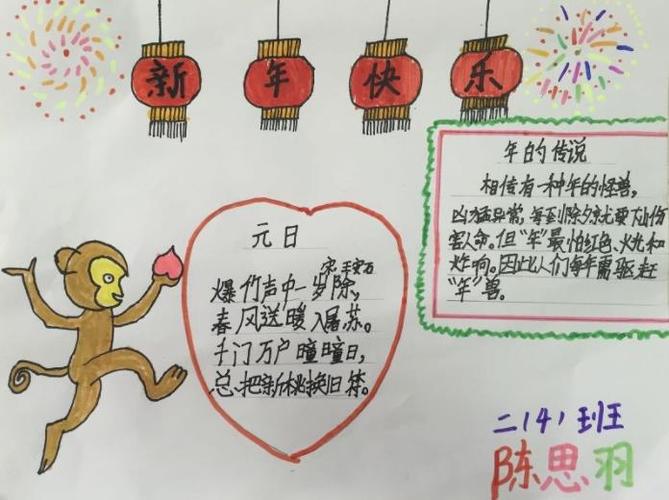 新年快乐
年的传说
相传有一种年的怪兽,
凶猛异常,每到除夕就要下山伤
害人命。但“年”最怕红色、火光和
炸响。因此人们每年需驱赶
“年”兽。
元日
宋 王安石
爆竹声中一岁除,
春风送暖入屠苏。
千门万户曈曈日,
总把新桃换旧符。
二(4)班
陈思羽